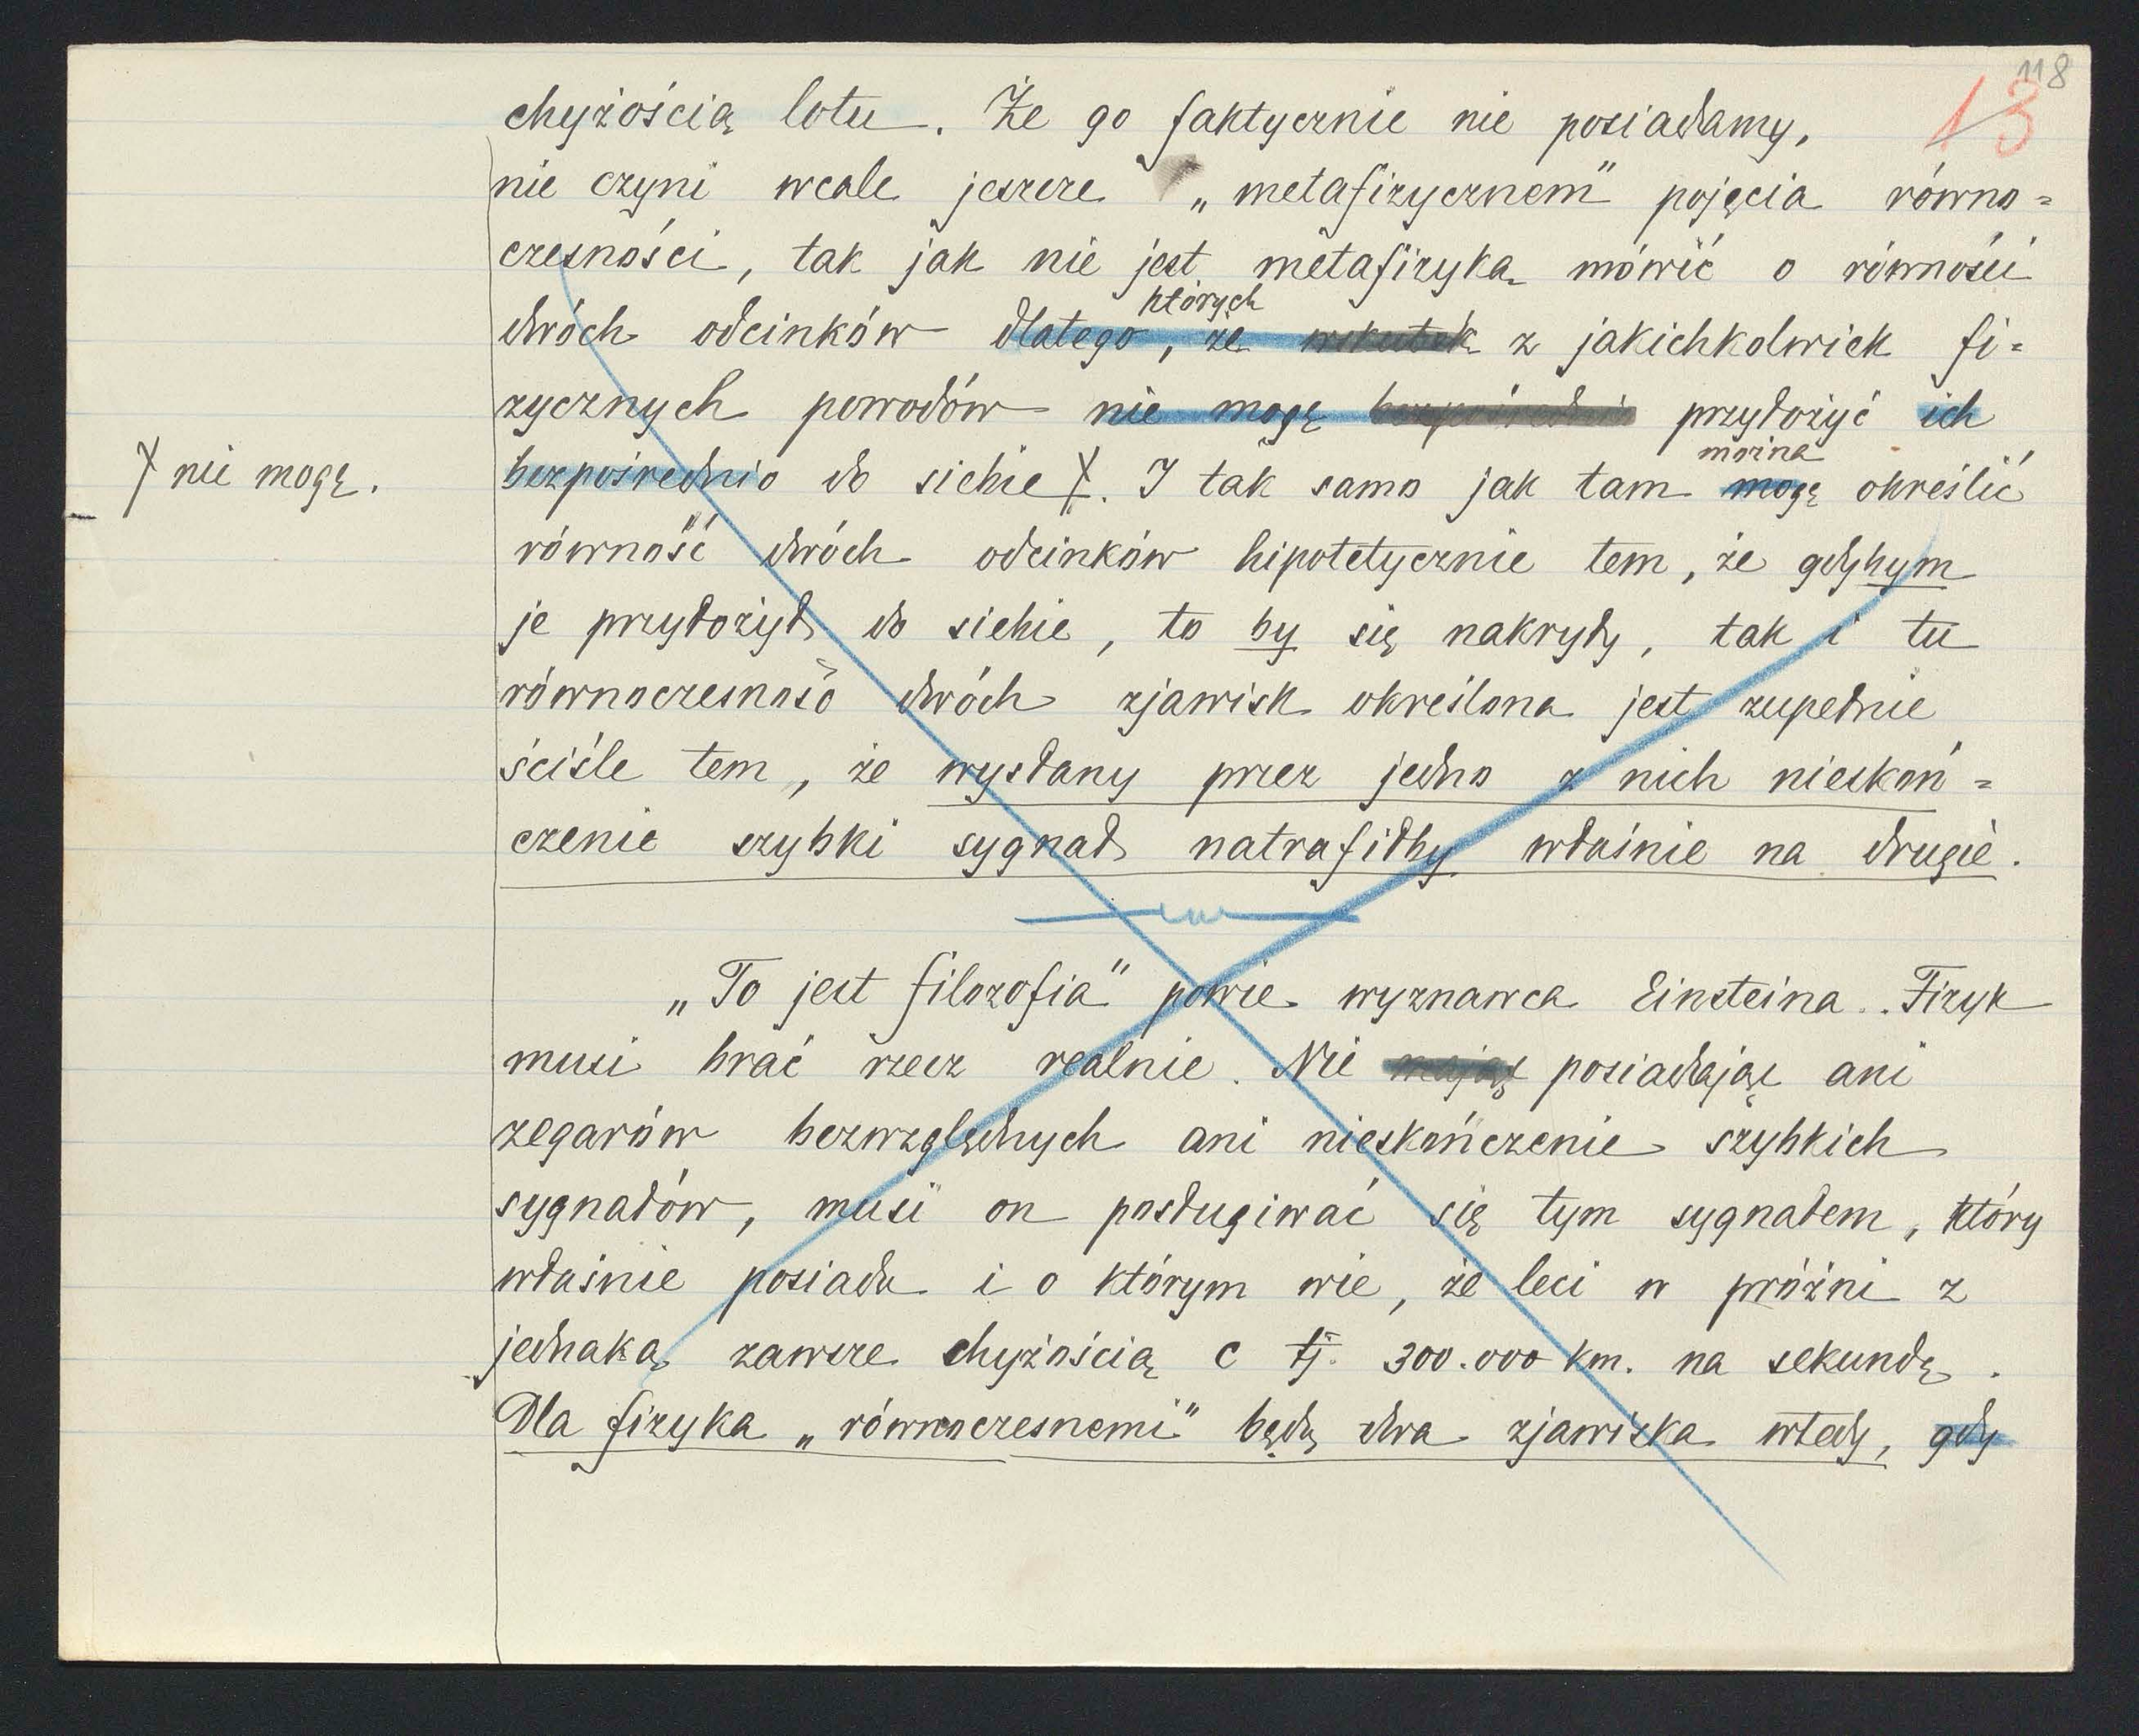 118
13
chyżością lotu. Że go faktycznie nie posiadamy,
nie czyni wcale jeszcze „metafizycznem" pojęcia równo=
czesności, tak jak nie jest metafizyką mówić o równości
których
dwóch odcinków dlatego, że wskutek z jakichkolwiek fi=
zycznych powodów nie mogę bezpośrednio przyłożyć ich
można
bezpośrednio do siebie X. I tak samo jak tam mogę określić
X nie mogę.
równość dwóch odcinków hipotetycznie tem, że gdybym
je przyłożył do siebie, to by się nakryły, tak i tu
równoczesność dwóch zjawisk określona jest zupełnie
ściśle tem, że wysłany przez jedno z nich nieskoń=
czenie szybki sygnał natrafiłby właśnie na drugie.
„To jest filozofia" powie wyznawca Einsteina.. Fizyk
musi brać rzecz realnie. Nie mając posiadając ani
zegarów bezwzględnych ani nieskończenie szybkich
sygnałów, musi on posługiwać się tym sygnałem, który
właśnie posiada i o którym wie, że leci w próżni z
jednaką zawsze chyżością c tj. 300.000 km. na sekundę.
Dla fizyka „równoczesnemi" będą dwa zjawiska wtedy, gdy